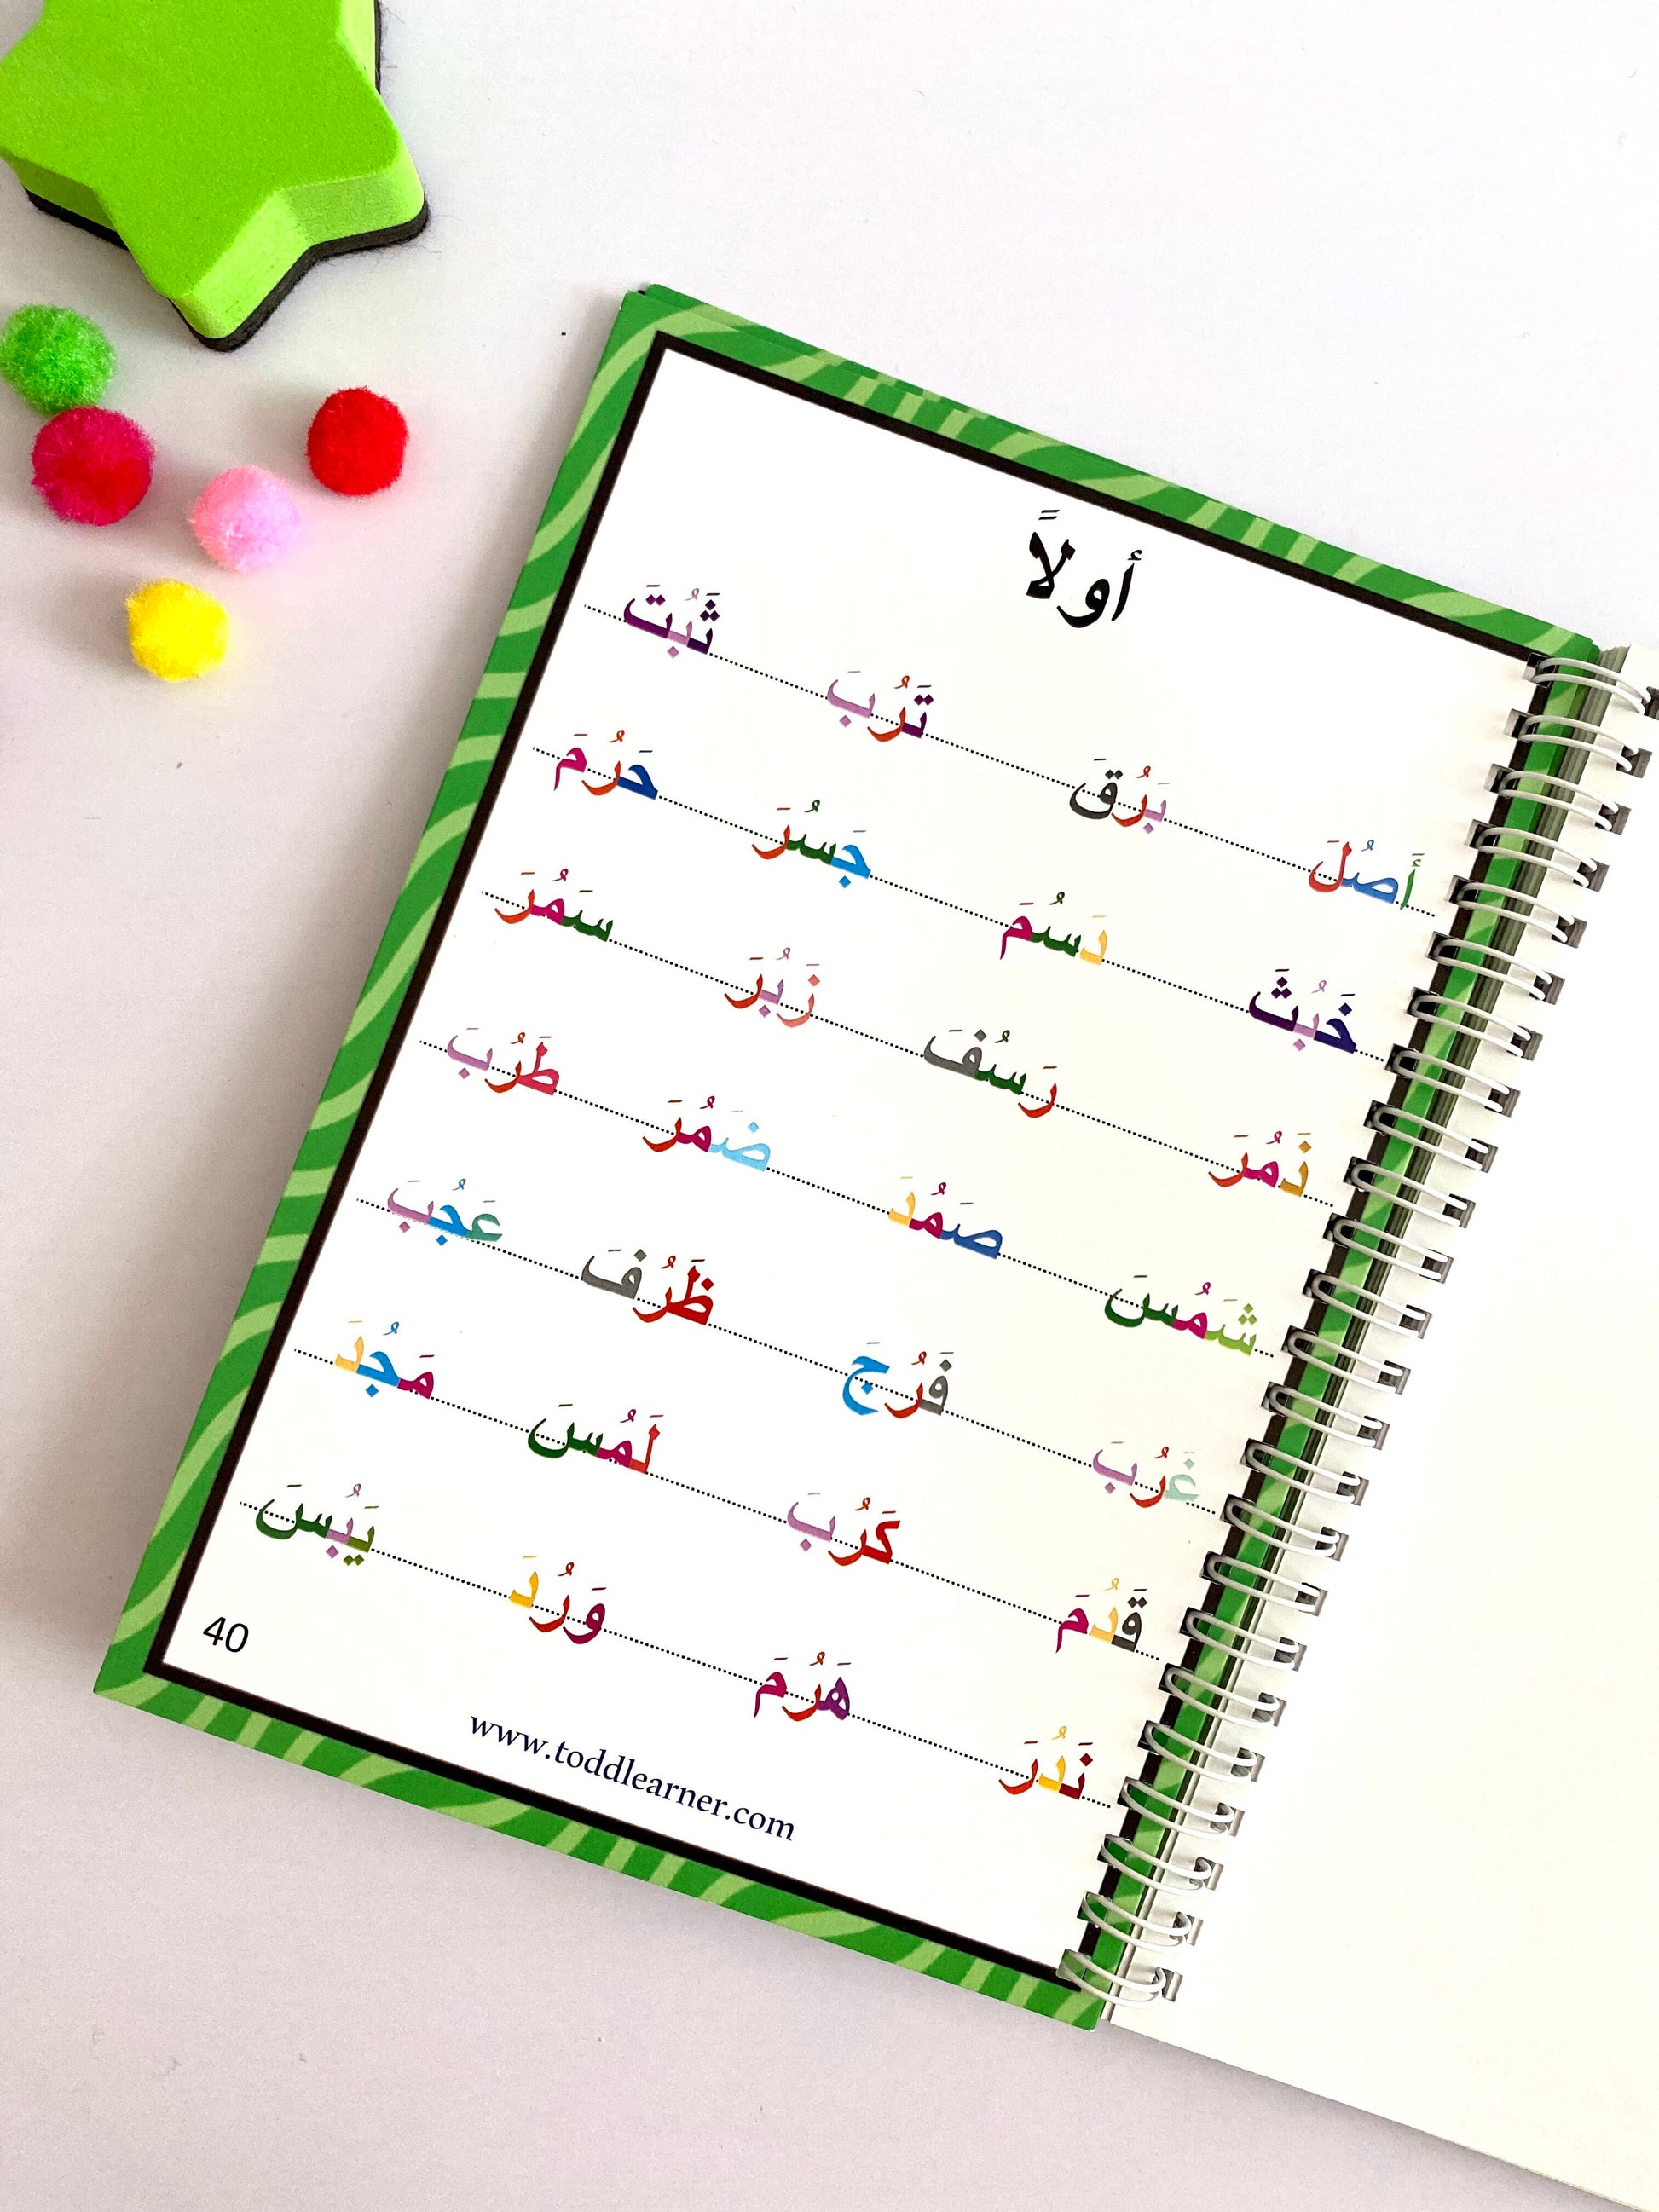 أولاً
أَصُلَ بَرُقَ تَرُبَ ثَبُتَ
خَبُثَ دَسُمَ جَسُرَ حَرُمَ
ذَمُرَ رَسُفَ زَبُرَ سَمُرَ
شَمُسَ صَمُدَ ضَمُرَ طَرُبَ
غَرُبَ فَرُجَ ظَرُفَ عَجُبَ
قَدُمَ كَرُبَ لَمُسَ مَجُدَ
نَدُرَ هَرُمَ وَرُدَ يَبُسَ
40
www.toddlearner.com